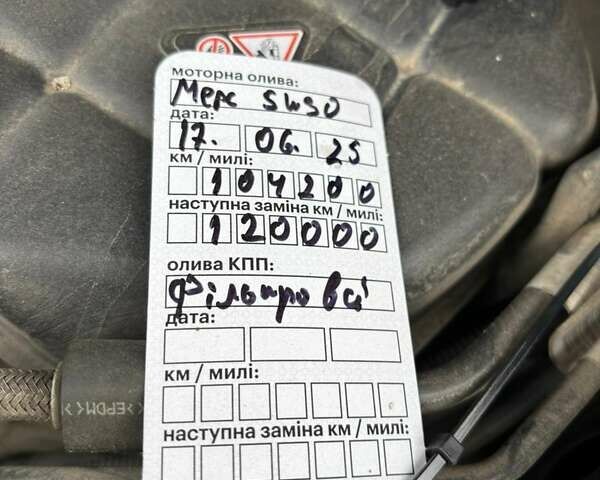 моторна олива:
Мерс 5W30
дата:
17. 06. 25
км / милі:
104200
наступна заміна км / милі:
120000
олива КПП:
Фільтра всі
дата:
км / милі:
наступна заміна км / милі:
>EPDM<